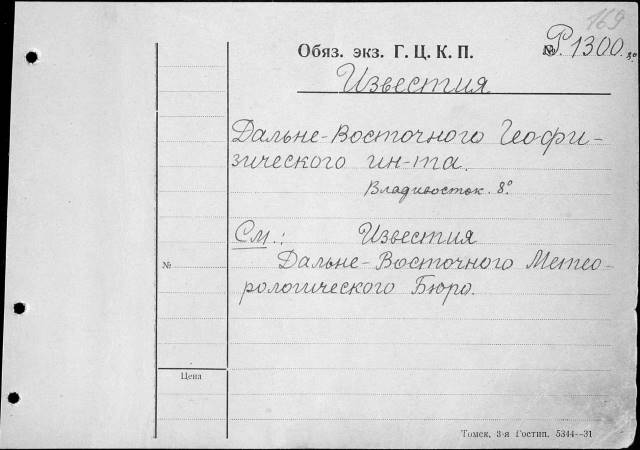 169
Обяз. экз. Г. Ц. К. П. № Р. 1300. 8°
Известия
Дальне-Восточного Геофи-
зического ин-та.
Владивосток. 8°.
См.: Известия
№ Дальне-Восточного Метео-
рологического Бюро.
Цена
Томск, 3-я Гостип. 5344—31